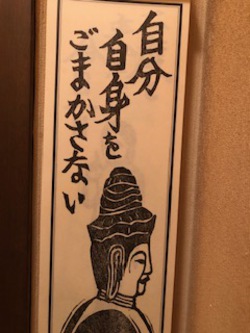 自分
自身を
ごまかさない